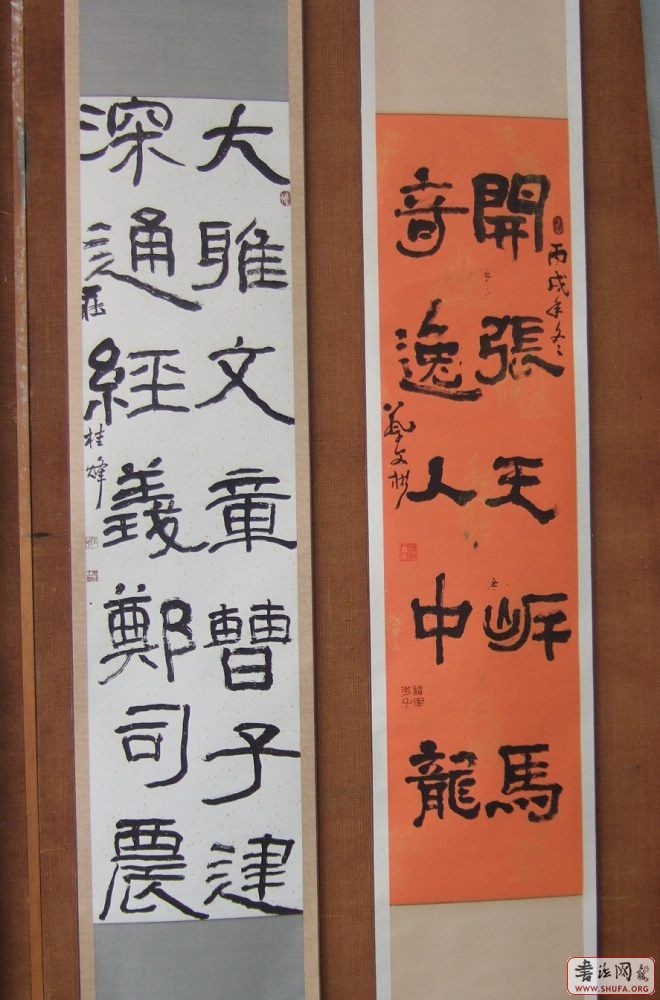 丙戌年冬
開張天岸馬
奇逸人中龍
大雅文章曹子建
深通經義鄭司農
桂烽
书法网
www.SHUFA.ORG